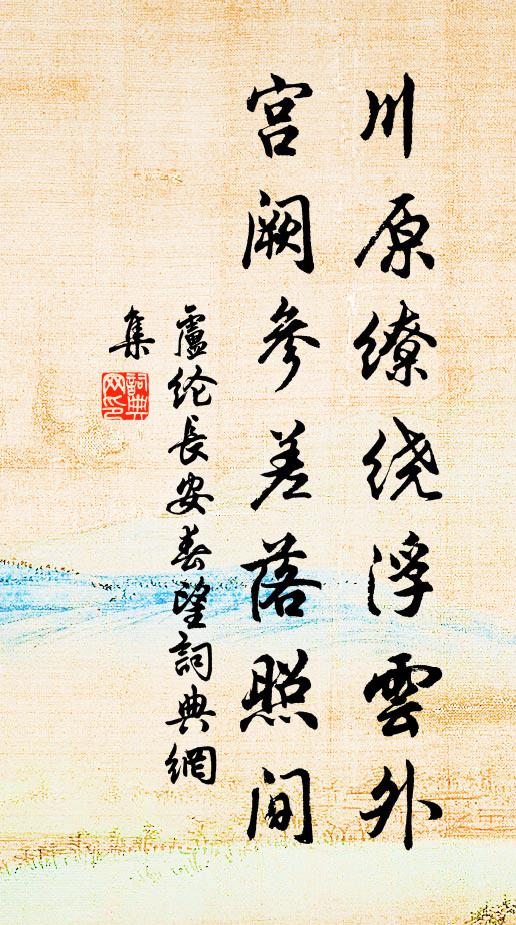 川原缭绕浮雲外
宫阙参差落照间
盧纶長安春望詞典網
集
詞典
网印